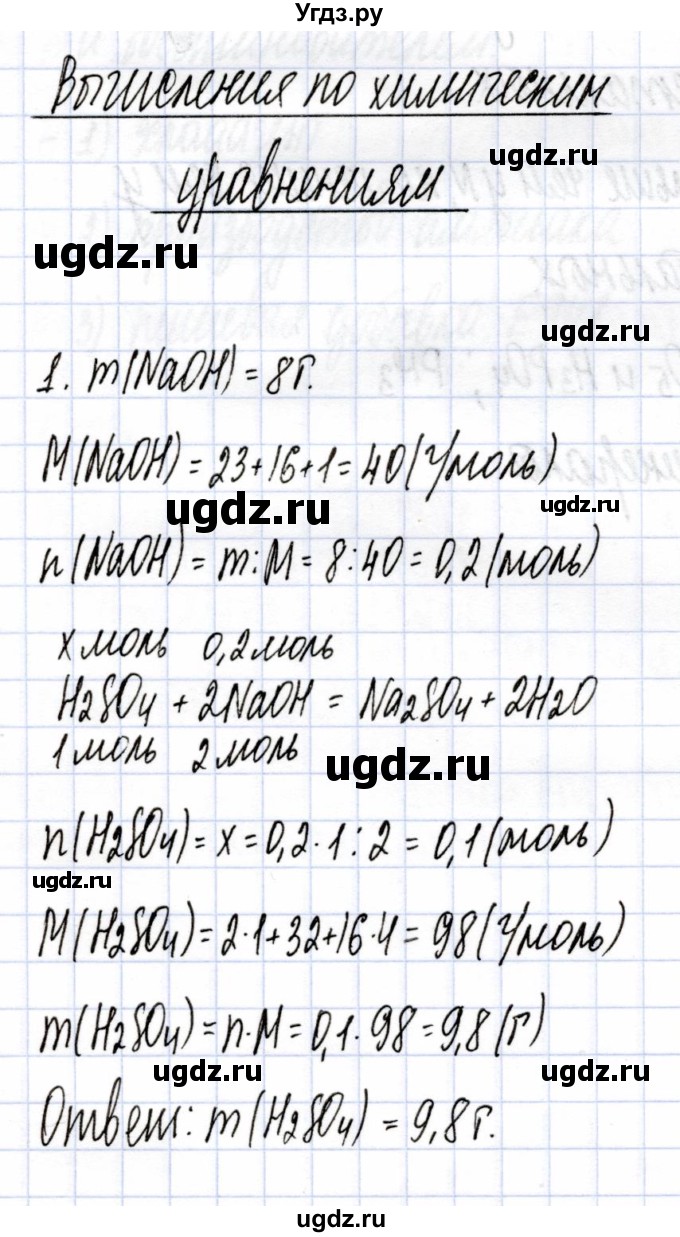 Угдз.ру
Вычисления по химическим
ugdz.ru
уравнениям
ugdz.ru
ugdz.ru
1. m(NaOH) = 8г.
M(NaOH) = 23+16+1 = 40(г/моль)
ugdz.ru ugdz.ru
n(NaOH) = m:M = 8:40 = 0,2(моль)
x моль 0,2 моль
H2SO4 + 2NaOH = Na2SO4 + 2H2O
1 моль 2 моль
ugdz.ru
n(H2SO4) = x = 0,2·1:2 = 0,1(моль)
ugdz.ru
M(H2SO4) = 2·1+32+16·4 = 98(г/моль)
m(H2SO4) = n·M = 0,1·98 = 9,8(г)
ugdz.ru ugdz.ru
Ответ: m(H2SO4) = 9,8г.
ugdz.ru